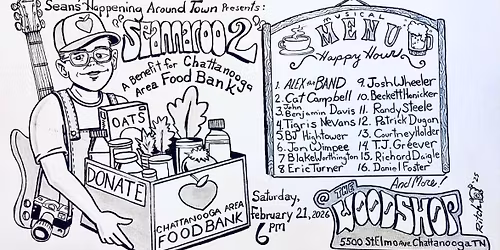 Seans Happening Around Town Presents:
"Seannaroo 2"
A Benefit for Chattanooga
Area Food Bank
OATS
DONATE
CHATTANOOGA AREA
FOOD BANK
MUSICAL
MENU
Happy Hour
1. ALEX the BAND
2. Cat Campbell
3. John Benjamin Davis
4. Tiaris Nevans
5. BJ Hightower
6. Jon Wimpee
7 Blake Worthington
8 Eric Turner
9. Josh Wheeler
10. Beckett Henicker
11. Randy Steele
12. Patrick Dugan
13. Courtney Holder
14. T.J. Greever
15. Richard Daigle
16. Daniel Foster
And More!
Saturday,
February 21, 2026
6 PM
@ THE
WOODSHOP
5500 St Elmo Ave. Chattanooga TN